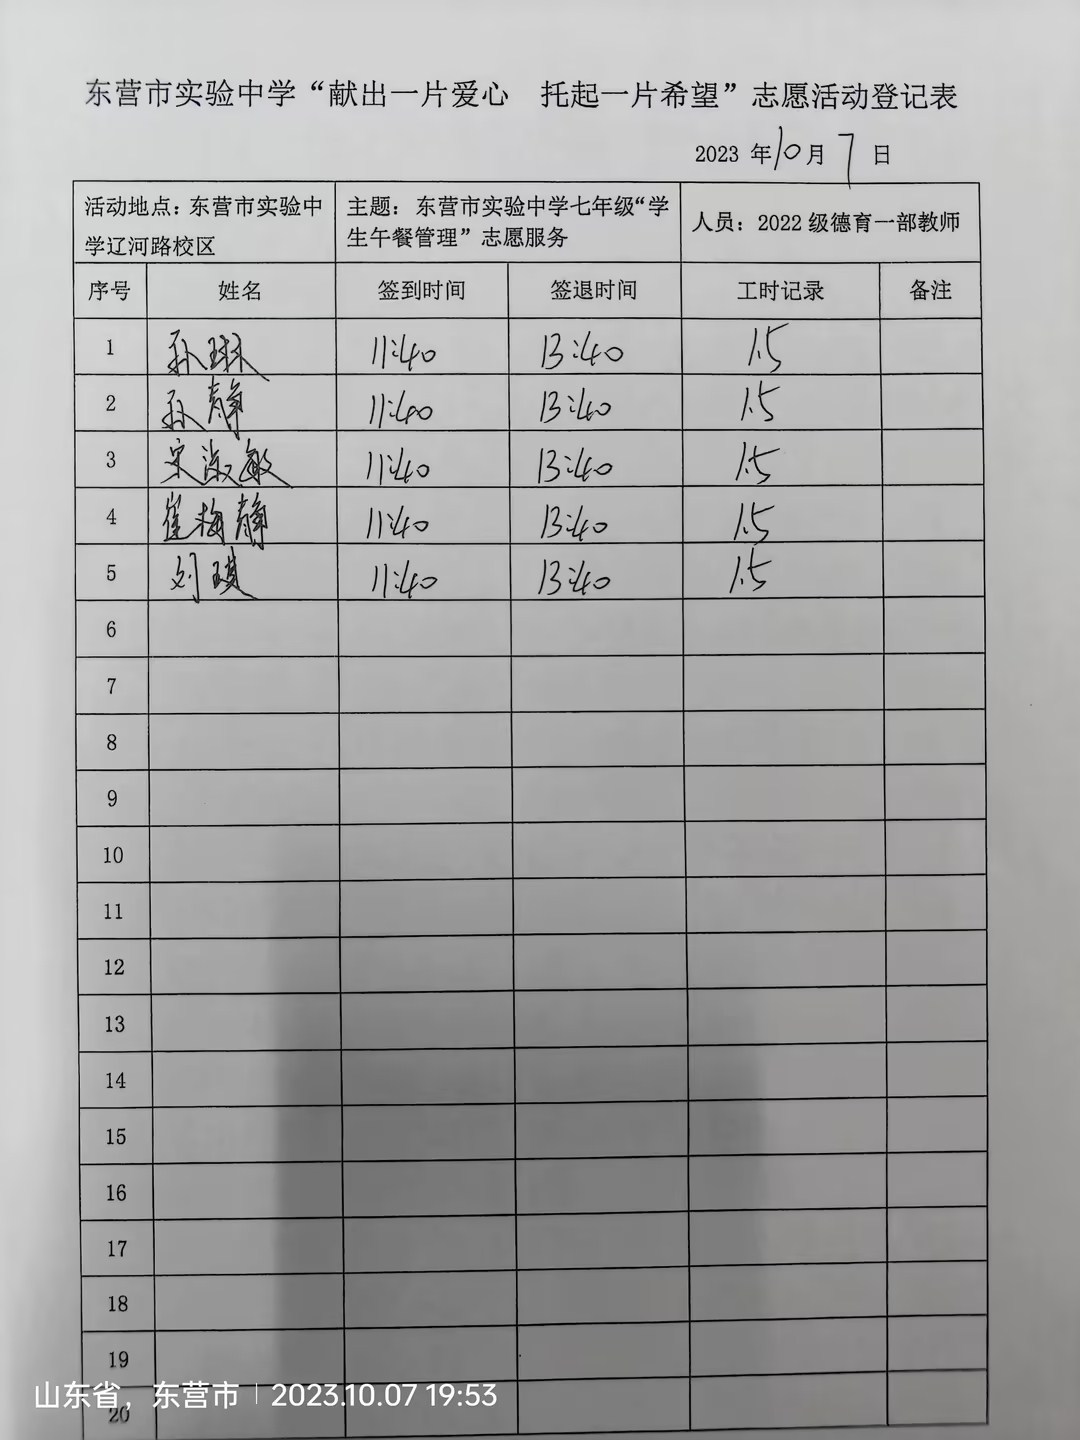 东营市实验中学“献出一片爱心 托起一片希望”志愿活动登记表
2023 年10月7日
活动地点：东营市实验中学辽河路校区 主题：东营市实验中学七年级“学生午餐管理”志愿服务 人员：2022 级德育一部教师
序号 姓名 签到时间 签退时间 工时记录 备注
1 孙琳 11:40 13:40 1.5
2 孙静 11:40 13:40 1.5
3 宋淑敏 11:40 13:40 1.5
4 崔梅静 11:40 13:40 1.5
5 刘琪 11:40 13:40 1.5
6
7
8
9
10
11
12
13
14
15
16
17
18
19
20
山东省，东营市 | 2023.10.07 19:53